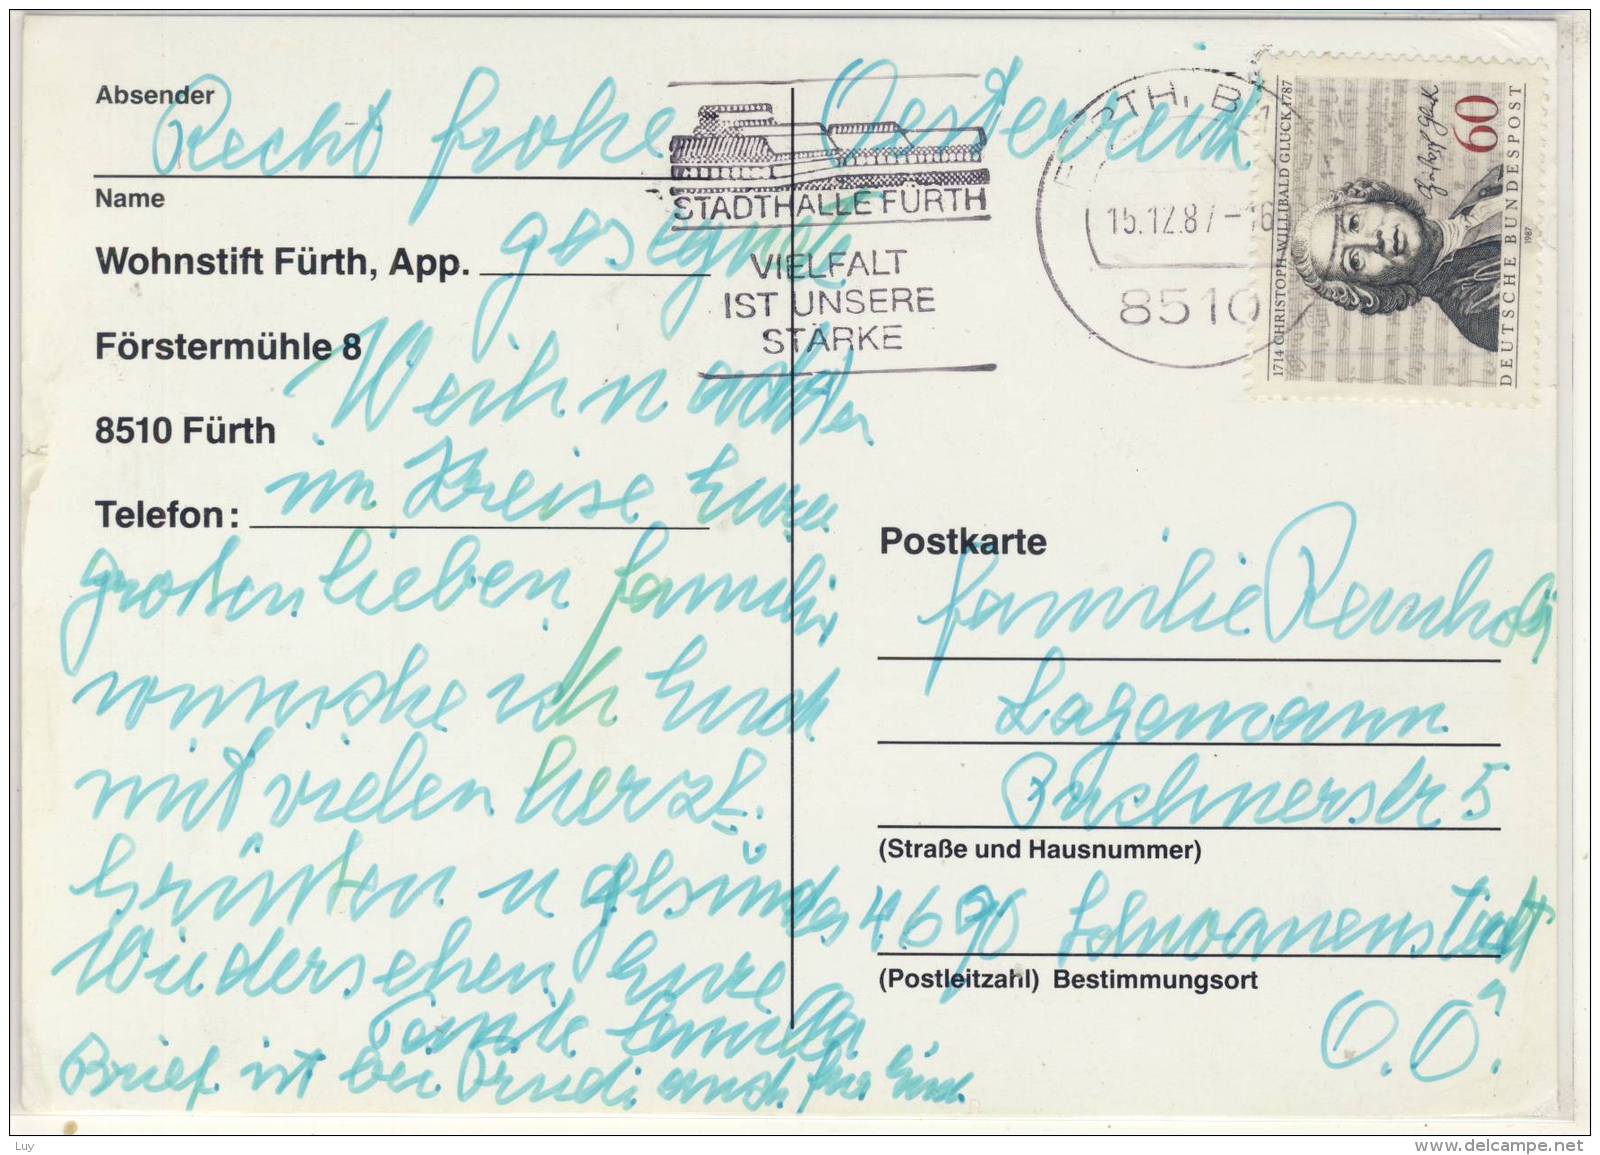 Absender
Recht frohe
Oesterreich
Name
gesegnete
Wohnstift Fürth, App.
Förstermühle 8
Weihnachten
8510 Fürth
im Kreise Eurer
Telefon:
großen lieben Familie
wünsche ich Euch
mit vielen herzl.
Grüßen u gesundes
Wiedersehen Eure
Tante
Brief ist bei auch für Euch
STADTHALLE FÜRTH
VIELFALT
IST UNSERE
STÄRKE
FÜRTH, BAY 1
15.12.87-16
8510
1714 CHRISTOPH WILLIBALD GLUCK 1787
60
DEUTSCHE BUNDESPOST
1987
Postkarte
Familie Reinhold
Lagemann
Buchnerstr 5
(Straße und Hausnummer)
4690 Schwanenstadt
(Postleitzahl) Bestimmungsort
O.Ö.
Luy
www.delcampe.net